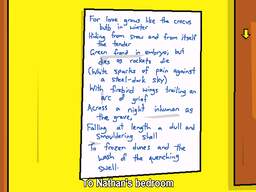 For love grows like the crocus
bulb in winter
Hiding from snow and from itself
the tender
Green frond in embryo; but
dies as rockets die
(White sparks of pain against
a steel-dark sky)
With firebird wings trailing an
arc of grief
Across a night inhuman as
the grave,
Falling at length a dull and
smouldering shell
To frozen dunes and the
wash of the quenching
swell.
To Nathan's bedroom